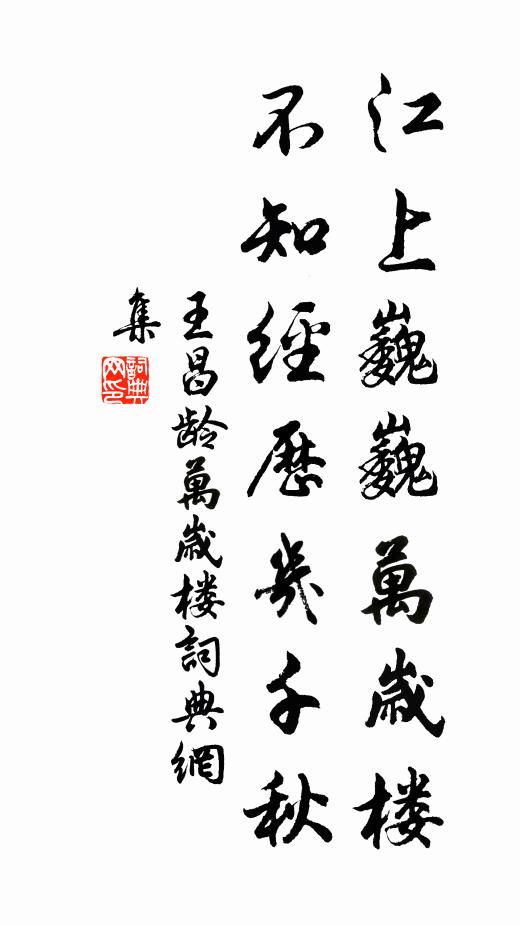 江上巍巍萬歲楼
不知經歷幾千秋
王昌齡萬歲楼詞典網
集
詞典网印